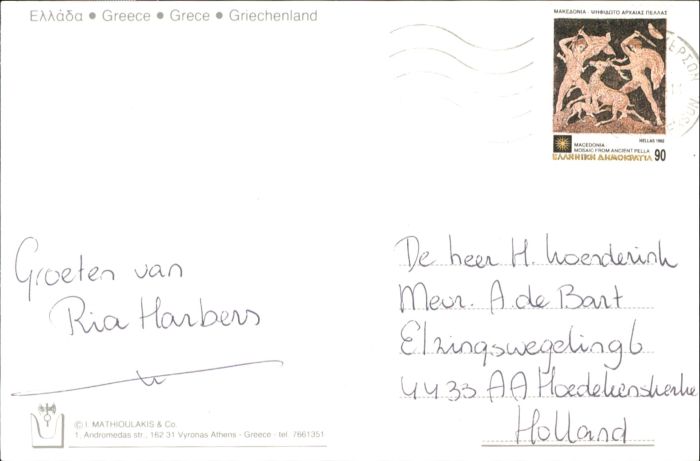 Ελλάδα • Greece • Grece • Griechenland
ΜΑΚΕΔΟΝΙΑ - ΨΗΦΙΔΩΤΟ ΑΡΧΑΙΑΣ ΠΕΛΛΑΣ
HELLAS 1992
MACEDONIA
MOSAIC FROM ANCIENT PELLA
ΕΛΛΗΝΙΚΗ ΔΗΜΟΚΡΑΤΙΑ 90
Groeten van
Ria Harbers
De heer H. Woenderink
Mevr. A. de Bart
Elzingswegeling 6
4433 AA Hoedekenskerke
Holland
© I. MATHIOULAKIS & Co.
1, Andromedas str., 162 31 Vyronas Athens - Greece - tel. 7661351